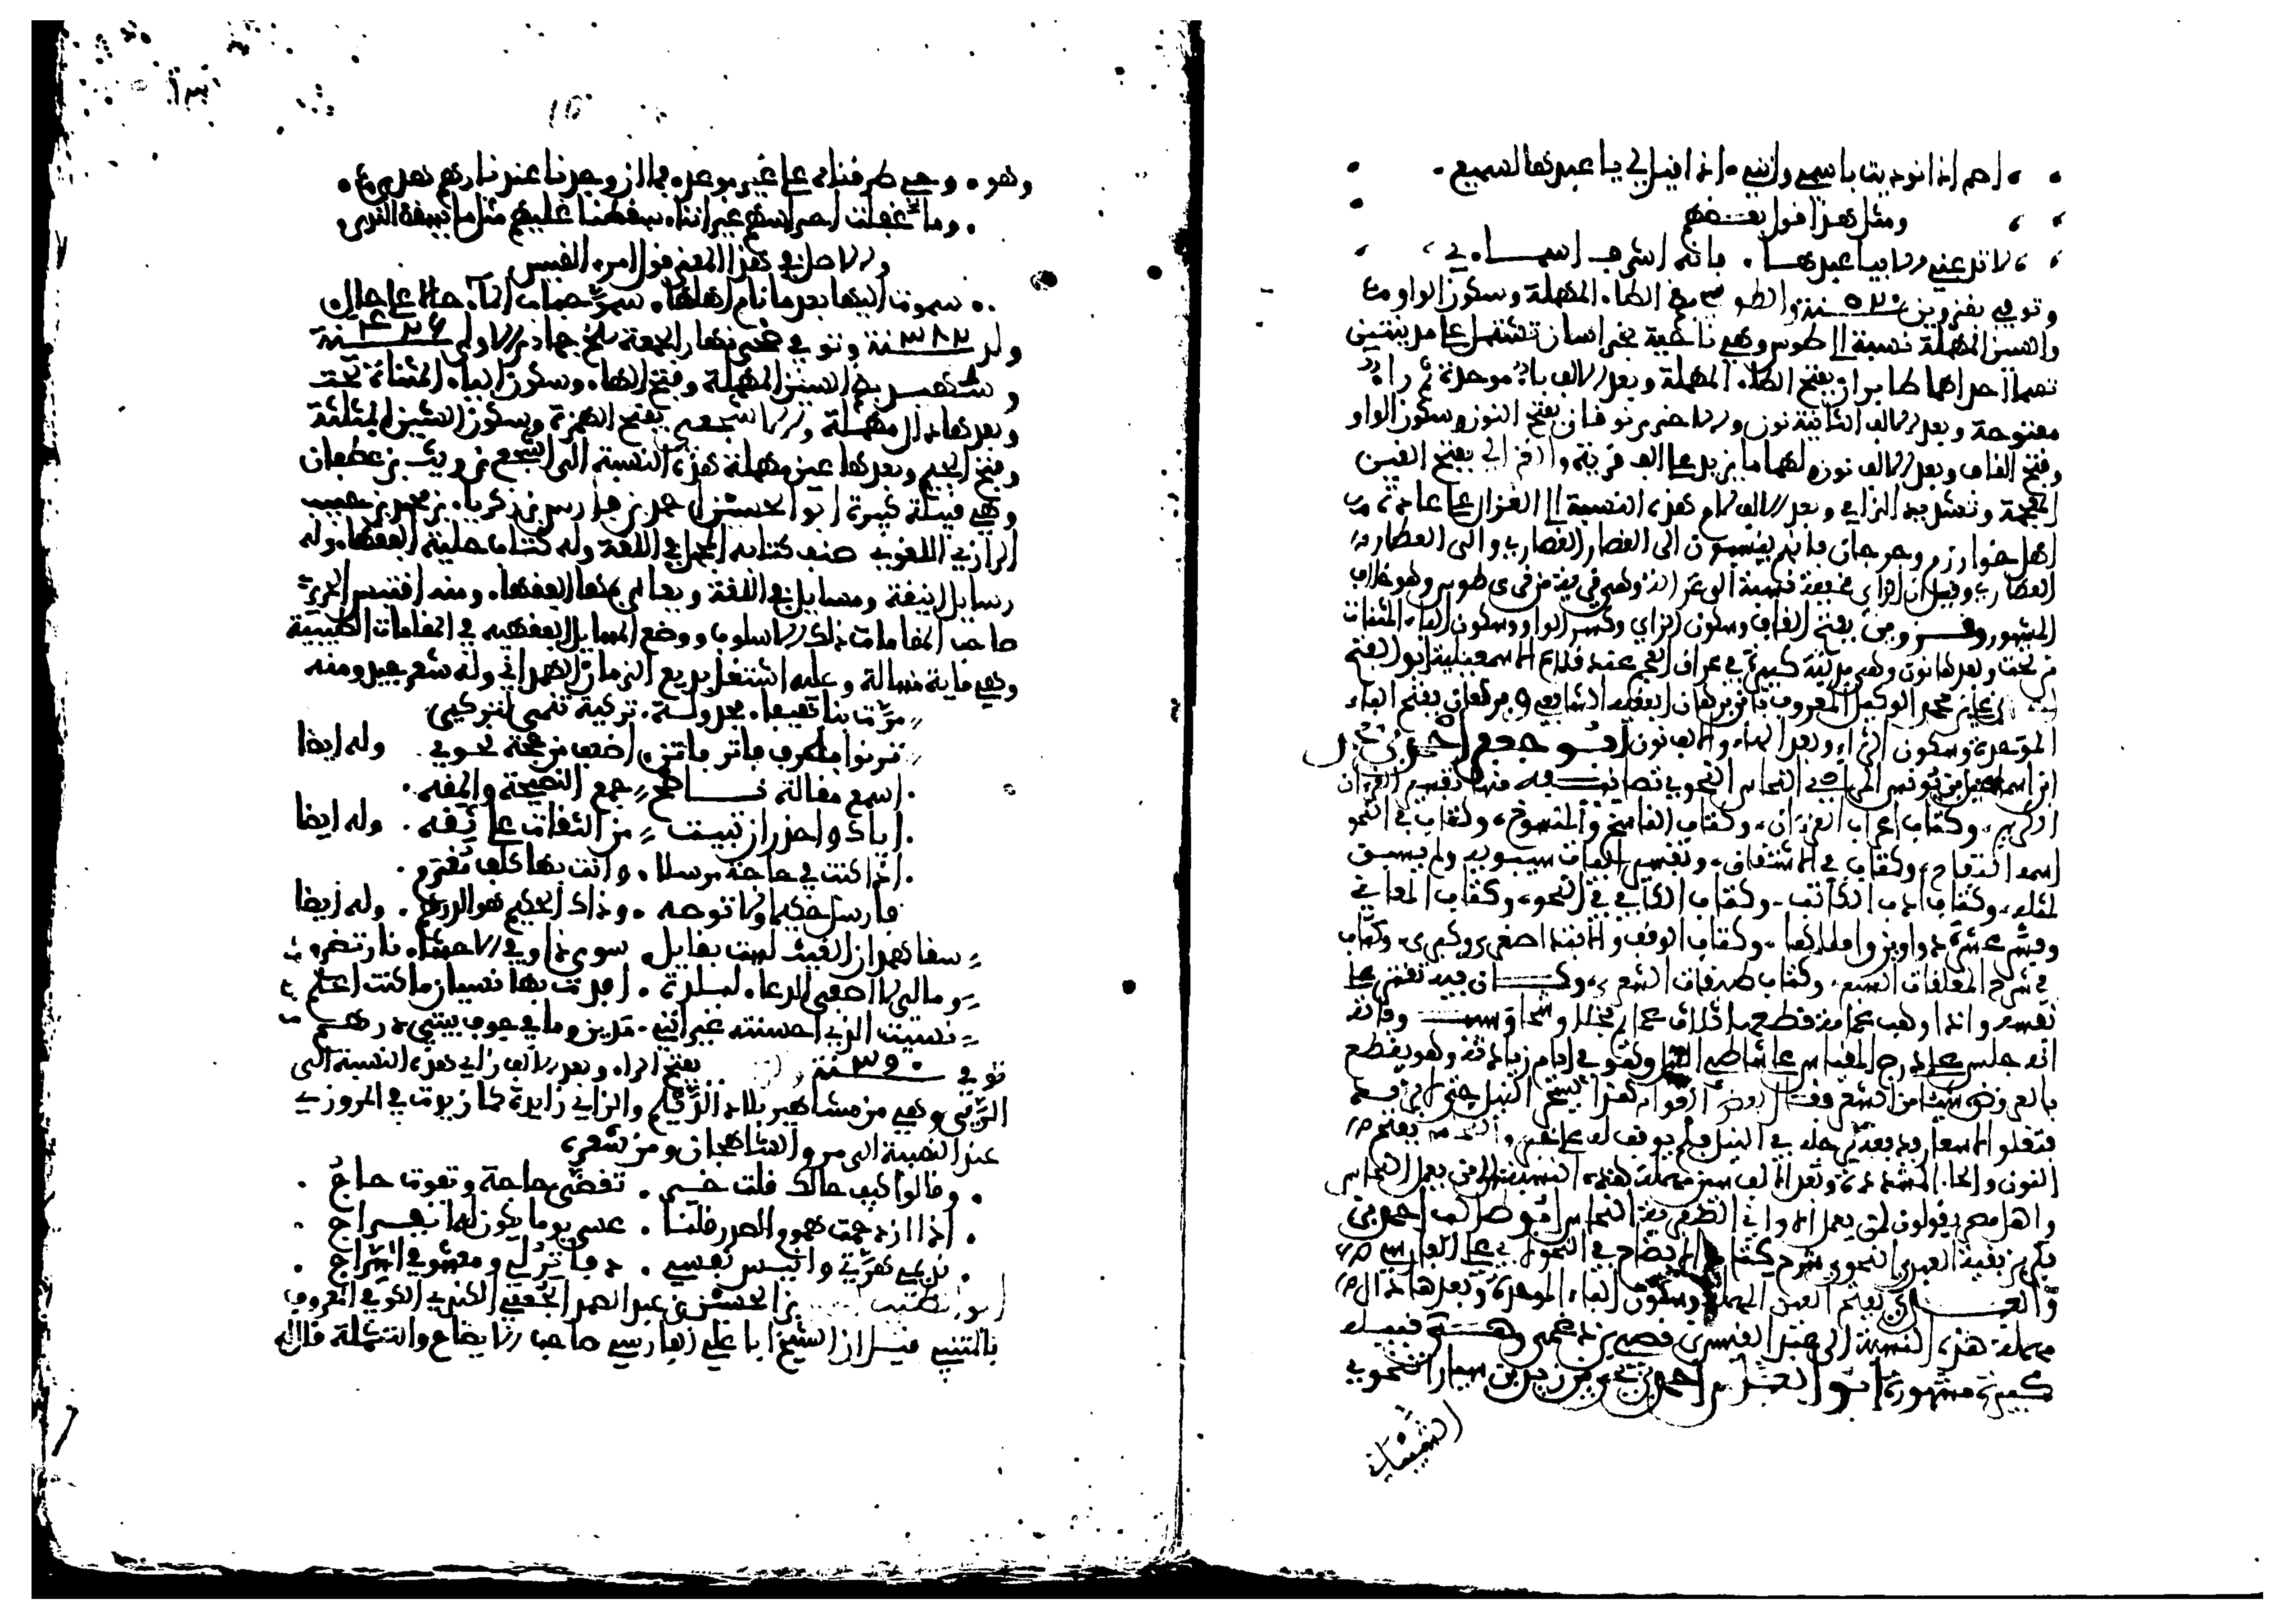 اصم إذا نوديت باسمي وانني إذا قيل لي يا عبدها لسميع
ومثل هذا قول بعضهم
لا تدعني الا بيا عبدها فانه اشرف اسماءي
وتوفي بقزوين ٥٢٠ سنة والطوسي بضم الطاء المهملة وسكون الواو
والسين المهملة نسبة الى طوس وهي ناحية بخراسان تشتمل على مدينتين
احداهما طابران بفتح الطاء المهملة وبعد الالف باء موحدة ثم راء
مفتوحة وبعد الالف الثانية نون والاخرى نوقان بفتح النون وسكون الواو
وفتح القاف وبعد الالف نون ولهما ما يزيد على الف قرية والغزالي بفتح الغين
المعجمة وتشديد الزاي وبعد الالف لام هذه النسبة الى الغزال على عادة
اهل خوارزم وجرجان فانهم ينسبون الى القصار القصاري والى العطار
العطاري وقيل ان الزاي مخففة نسبة الى غزالة وهي قرية من قرى طوس وهو خلاف
المشهور وقزوين بفتح القاف وسكون الزاي وكسر الواو وسكون الياء المثناة
من تحت وبعدها نون وهي مدينة كبيرة في عراق العجم عند قلاع الاسمعيلية ابو الفتح
بن علي بن محمد الوكيل المعروف بابن برهان الفقيه الشافعي وبرهان بفتح الباء
الموحدة وسكون الراء وبعد الهاء والالف نون ابو جعفر احمد بن محمد
ابن اسمعيل بن يونس المرادي النحاس النحوي تصانيفه منها تفسير القرءان
الكريم وكتاب اعراب القرءان وكتاب الناسخ والمنسوخ وكتاب في النحو
اسمه التفاح وكتاب في الاشتقاق وتفسير ابيات سيبويه ولم يسبق
لمثله وكتاب ادب الكاتب وكتاب الكافي في النحو وكتاب المعاني
وفسر عشرة دواوين واملاها وكتاب الوقف والابتدا صغرى وكبرى وكتاب
في شرح المعلقات السبع وكتاب طبقات الشعراء وكان فيه تقتير على
نفسه واذا وهب عمامة قطعها ثلاث عمايم بخلا وشحا وسبب وفاته
انه جلس على درج المقياس على شاطئ النيل وهو في ايام زيادته وهو يقطع
بالعروض شيئا من الشعر فقال بعض العوام هذا يسحر النيل حتى لا يزيد
فتغلو الاسعار فدفعه برجله في النيل فلم يوقف له على خبر والنحاس بفتح
النون والحاء المشددة وبعد الالف سين مهملة هذه النسبة الى من يعمل النحاس
واهل مصر يقولون لمن يعمل الاواني الصفرية النحاس ابو طالب احمد بن
بكر بن بقية العبدي النحوي شرح كتاب الايضاح في النحو لابي علي الفارسي
والعبدي بفتح العين المهملة وسكون الباء الموحدة وبعدها دال
مهملة هذه النسبة الى عبد القيس بن افصى بن دعمي وهي قبيلة
كبيرة مشهورة ابو العباس احمد بن يحيى بن زيد بن سيار النحوي
الشيباني
16
وهو وحي طرقناه على غير موعد فما ان وجدنا عند نارهم هدى
وما غفلت احراسهم غير اننا سقطنا عليهم مثل ما يسقط الندى
والاصل في هذا المعنى قول امرء القيس
سموت اليها بعد ما نام اهلها سمو حباب الماء حالا على حال
ولد ٣٨٢ سنة وتوفي ضحى نهار الجمعة سلخ جمادى الاولى ٤٢٦ سنة
وشهيد بضم الشين المهملة وفتح الهاء وسكون الياء المثناة تحت
وبعدها دال مهملة والاشجعي بفتح الهمزة وسكون الشين المثلثة
وفتح الجيم وبعدها عين مهملة هذه النسبة الى اشجع بن ريث بن غطفان
وهي قبيلة كبيرة ابو الحسين احمد بن فارس بن زكرياء بن محمد بن حبيب
الرازي اللغوي صنف كتابه المجمل في اللغة وله كتاب حلية الفقهاء وله
رسايل انيقة ومسايل في اللغة ويعايى بها الفقهاء ومنه اقتبس الحريري
صاحب المقامات ذلك الاسلوب ووضع المسايل الفقهية في المقامات الطيبية
وهي ماية مسالة وعليه اشتغل بديع الزمان الهمداني وله شعر جيد ومنه
مرت بنا هيفاء مجدولة تركية تنمى لتركي
ترنو بطرف فاتر فاتن اضعف من حجة نحوي وله ايضا
اسمع مقالة ناصح جمع النصيحة والمقه
اياك واحذر ان تبيت من الثقات على ثقه وله ايضا
اذا كنت في حاجة مرسلا وانت بها كلف مغرم
فارسل حكيما ولا توصه وذاك الحكيم هو الدرهم وله ايضا
سقا همدان الغيث لست بقايل سوى ذا وفي الاحشاء نار تضرم
ومالي لا اصفي الدعاء لبلدة افدت بها نسيان ما كنت اعلم
نسيت الذي احسنته غير انني مدين وما في جوف بيتي درهم
توفي ٣٩٠ سنة بفتح الراء وبعد الالف زاي هذه النسبة الى
الري وهي من مشاهير بلاد الديلم والزاي زايدة كما زيدت في المروزي
عند النسبة الى مرو الشاهجان ومن شعره
وقالوا كيف حالك قلت خير تقضى حاجة وتفوت حاج
اذا ازدحمت هموم الصدر قلنا عسى يوما يكون لها انفراج
نديمي هرتي وانيس نفسي دفاتر لي ومعشوقي السراج
ابو الطيب بن الحسين بن عبد الصمد الجعفي الكندي الكوفي المعروف
بالمتنبي قيل ان الشيخ ابا علي الفارسي صاحب الايضاح والتكملة قال له